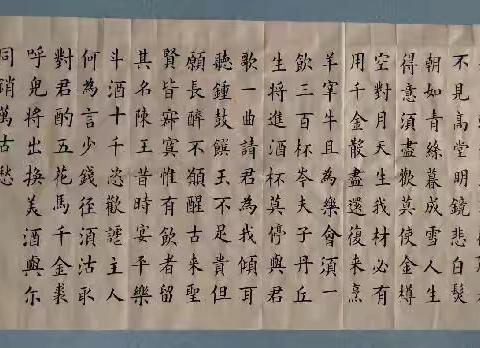 不見高堂明鏡悲白髮
朝如青絲暮成雪人生
得意須盡歡莫使金樽
空對月天生我材必有
用千金散盡還復来烹
羊宰牛且為樂會須一
飲三百杯岑夫子丹丘
生将進酒杯莫停與君
歌一曲請君為我傾耳
聽鍾鼓饌玉不足貴但
願長醉不願醒古来聖
賢皆寂寞惟有飲者留
其名陳王昔時宴平樂
斗酒十千恣歡謔主人
何為言少錢径須沽取
對君酌五花馬千金裘
呼兒将出換美酒與尔
同銷萬古愁